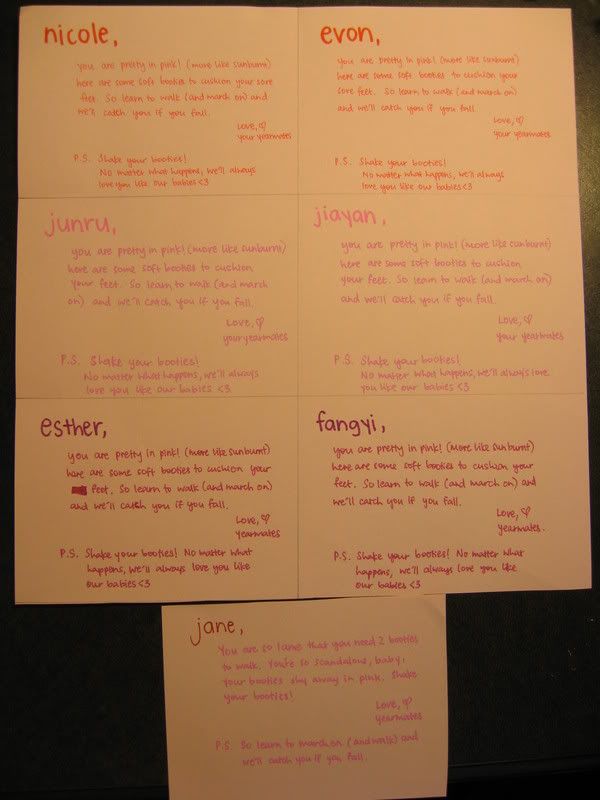 nicole,
you are pretty in pink! (more like sunburnt)
here are some soft booties to cushion your sore
feet. So learn to walk (and march on) and
we'll catch you if you fall.
Love, ♡
your yearmates
P.S. Shake your booties!
No matter what happens, we'll always
love you like our babies <3
evon,
you are pretty in pink! (more like sunburnt)
here are some soft booties to cushion your
sore feet. So learn to walk (and march on)
and we'll catch you if you fall.
Love, ♡
your yearmates
P.S. Shake your booties!
No matter what happens, we'll always
love you like our babies <3
junru,
you are pretty in pink! (more like sunburnt)
here are some soft booties to cushion
your feet. So learn to walk (and march
on) and we'll catch you if you fall.
Love, ♡
your yearmates
P.S. Shake your booties!
No matter what happens, we'll always
love you like our babies <3
jiayan,
you are pretty in pink! (more like sunburnt)
here are some soft booties to cushion
your feet. So learn to walk (and march on)
and we'll catch you if you fall.
Love, ♡
your yearmates
P.S. Shake your booties!
No matter what happens, we'll always love
you like our babies <3
esther,
you are pretty in pink! (more like sunburnt)
here are some soft booties to cushion your
feet. So learn to walk (and march on)
and we'll catch you if you fall.
Love, ♡
yearmates
P.S. Shake your booties! No matter what
happens, we'll always love you like
our babies <3
fangyi,
you are pretty in pink! (more like sunburnt)
here are some soft booties to cushion your
feet. So learn to walk (and march on) and
we'll catch you if you fall.
Love, ♡
yearmates.
P.S. Shake your booties! No matter what
happens, we'll always love you like
our babies <3
jane,
You are so lame that you need 2 booties
to walk. You're so scandalous, baby,
your booties shy away in pink. Shake
your booties!
Love, ♡
yearmates
P.S. So learn to march on (and walk) and
we'll catch you if you fall.